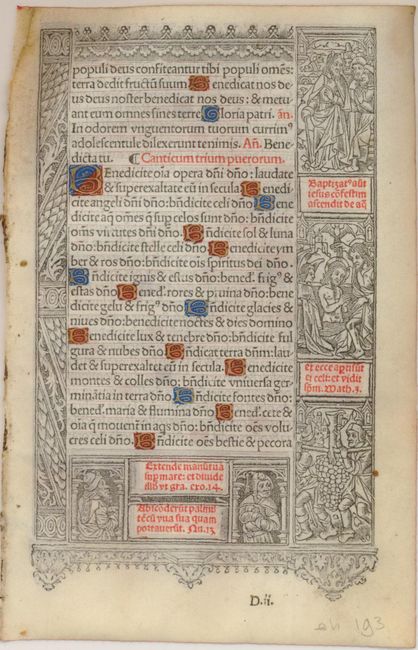 populi deus confiteantur tibi populi om̄es:
terra dedit fructū suum Benedicat nos de
us deus noster benedicat nos deus: & metu
ant eum omnes fines terre Gloria patri. an̄.
In odorem vnguentorum tuorum currim⁹
adolescentule dilexerunt te nimis. An̄. Bene
dicta tu. ¶ Canticum trium puerorum.
BEnedicite oīa opera dn̄i dn̄o: laudate
& superexaltate eū in secula Benedi
cite angeli dn̄i dn̄o: bn̄dicite celi dn̄o Bene
dicite aq̄ om̄es q̄ sup̄ celos sunt dn̄o: bn̄dicite
om̄s virtutes dn̄i dn̄o Bn̄dicite sol & luna
dn̄o: bn̄dicite stelle celi dn̄o Benedicite ym
ber & ros dn̄o: bn̄dicite oīs spiritus dei dn̄o.
Bn̄dicite ignis & estus dn̄o: bened. frig⁹ &
estas dn̄o Bened. rores & pruina dn̄o: bene
dicite gelu & frig⁹ dn̄o Bn̄dicite glacies &
niues dn̄o: benedicite noctes & dies domino
Benedicite lux & tenebre dn̄o: bn̄dicite ful
gura & nubes dn̄o Bn̄dicat terra dn̄m: lau
det & superexaltet eū in secula. Benedicite
montes & colles dn̄o: bn̄dicite vniuersa ger
minātia in terra dn̄o Bn̄dicite fontes dn̄o:
bened. maria & flumina dn̄o Bened. cete &
oīa q̄ mouent̄ in aq̄s dn̄o: bn̄dicite oēs volu
cres celi dn̄o. Bn̄dicite oēs bestie & pecora
Baptizat⁹ aūt
iesus cōfestim
ascendit de aq̄
et ecce aperti sūt
ei celi: et vidit
sp̄m. Math. 3.
Extende manū tuā
sup̄ mare: et diuide
illud vt gra. exo. 14.
Absciderūt palmi
tē cū vua sua quam
portauerūt. Nu. 13
D.ii.
193